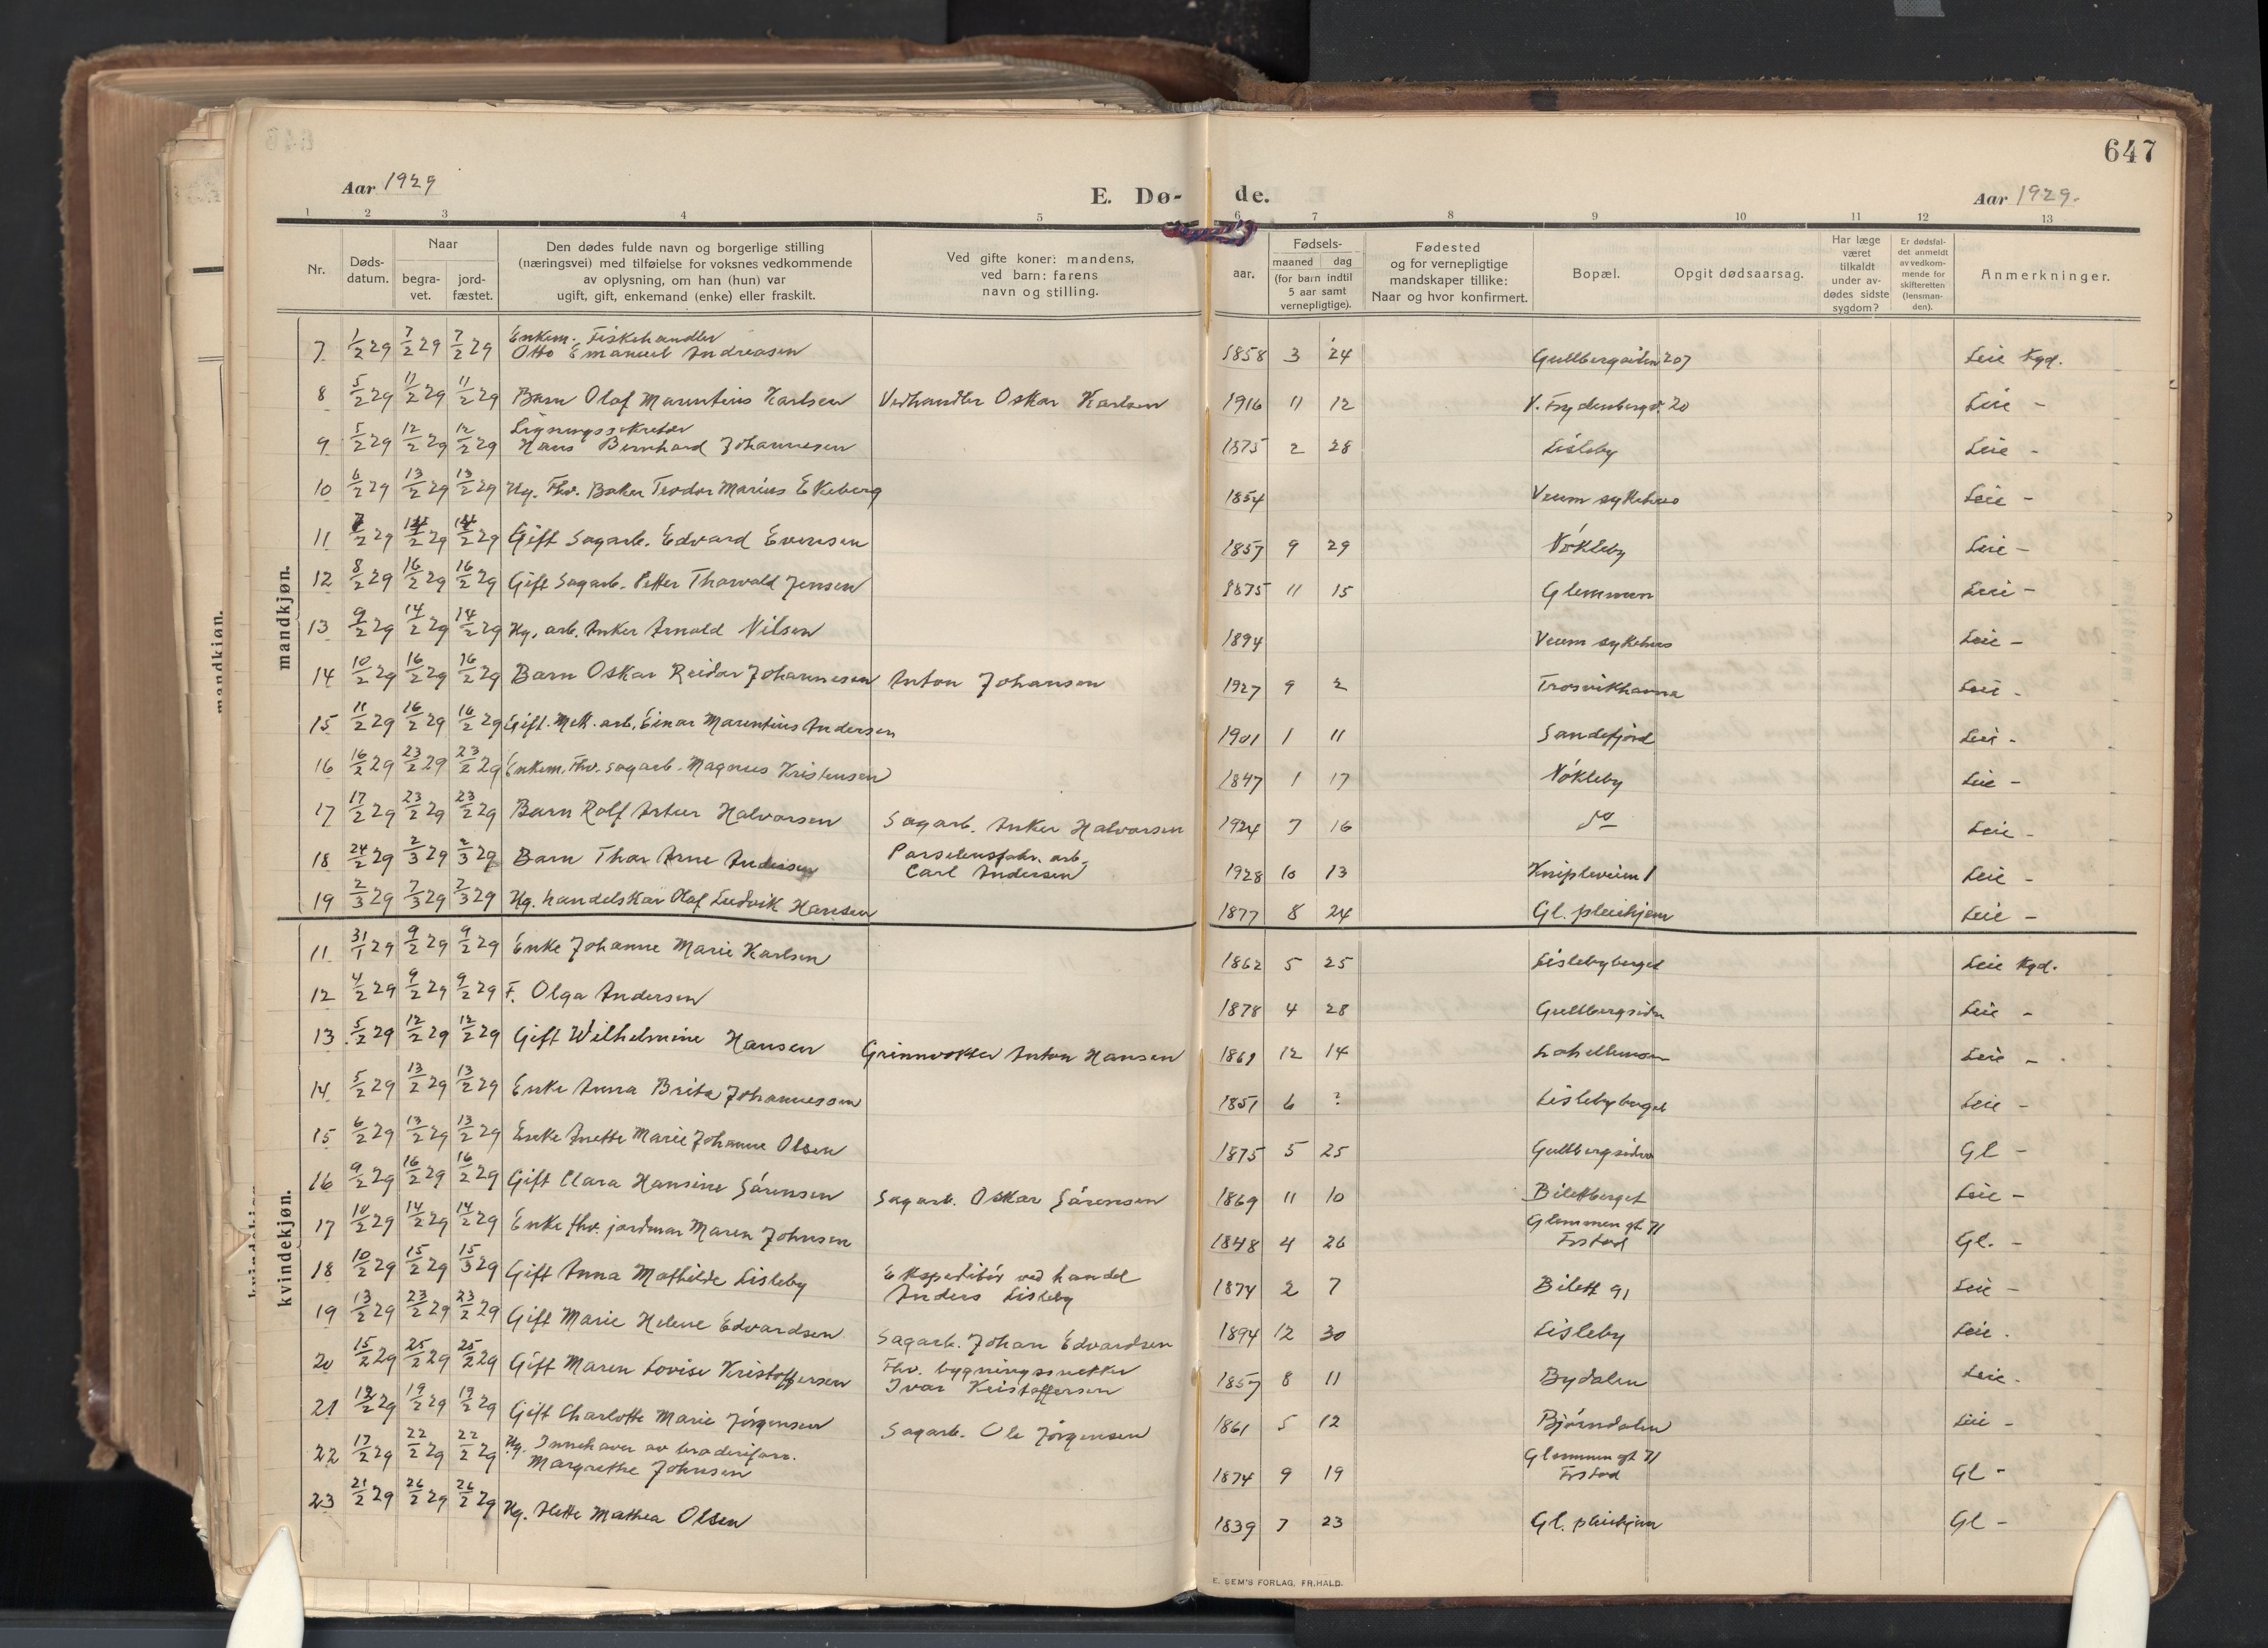 647
Aar 1929
E. Dø- de.
Aar 1929.
1 2 3 4 5 6 7 8 9 10 11 12 13
Nr.
Døds-
datum.
Naar
begra-
vet.
jord-
fæstet.
Den dødes fulde navn og borgerlige stilling
(næringsvei) med tilføielse for voksnes vedkommende
av oplysning, om han (hun) var
ugift, gift, enkemand (enke) eller fraskilt.
Ved gifte koner: mandens,
ved barn: farens
navn og stilling.
aar.
Fødsels-
maaned dag
(for barn indtil
5 aar samt
vernepligtige).
Fødested
og for vernepligtige
mandskaper tillike:
Naar og hvor konfirmert.
Bopæl.
Opgit dødsaarsag.
Har læge
været
tilkaldt
under av-
dødes sidste
sygdom?
Er dødsfal-
det anmeldt
av vedkom-
mende for
skifteretten
(lensman-
den).
Anmerkninger.
mandkjøn.
Enkem. Fiskehandler
7 1/2 29 7/2 29 7/2 29 Otto Emanuel Andreasen 1858 3 24 Gullbergsiden 207 Leie Kgd.
8 5/2 29 11/2 29 11/2 29 Barn Olaf Marentius Karlsen Vedhandler Oskar Karlsen 1916 11 12 V. Frydenbergv. 20 Leie -
Ligningssekretær
9 5/2 29 12/2 29 12/2 29 Hans Bernhard Johannesen 1875 2 28 Lisleby Leie -
10 6/2 29 13/2 29 13/2 29 Ug. Fhv. Baker Teodor Marius Ekeberg 1854 Veum sykehus Leie -
11 7/2 29 14/2 29 14/2 29 Gift Sagarb. Edvard Evensen 1857 9 29 Nøkleby Leie -
12 8/2 29 16/2 29 16/2 29 Gift Sagarb. Petter Thorvald Jensen 1875 11 15 Glemmen Leie -
13 9/2 29 14/2 29 14/2 29 Ug. arb. Anker Arnold Nilsen 1894 Veum sykehus Leie -
14 10/2 29 16/2 29 16/2 29 Barn Oskar Reidar Johannesen Anton Johansen 1927 9 2 Trosvikhavna Leie -
15 11/2 29 16/2 29 16/2 29 Gift. Mek. arb. Einar Marentius Andersen 1901 1 11 Sandefjord Leie -
16 16/2 29 23/2 29 23/2 29 Enkem. Fhv. sagarb. Magnus Kristensen 1847 1 17 Nøkleby Leie -
17 17/2 29 23/2 29 23/2 29 Barn Rolf Artur Halvorsen Sagarb. Anker Halvorsen 1924 7 16 do Leie -
18 24/2 29 2/3 29 2/3 29 Barn Thor Arne Andersen Porselensfabr. arb.
Carl Andersen 1928 10 13 Knipleveien 1 Leie -
19 2/3 29 7/3 29 7/3 29 Ug. handelskar Olaf Ludvik Hansen 1877 8 24 Gl. pleiehjem Leie -
kvindekjøn.
11 31/1 29 9/2 29 9/2 29 Enke Johanne Marie Karlsen 1862 5 25 Lislebyberget Leie Kgd.
12 4/2 29 9/2 29 9/2 29 F. Olga Andersen 1878 4 28 Gullbergsiden Leie -
13 5/2 29 12/2 29 12/2 29 Gift Wilhelmine Hansen Grinnvokter Anton Hansen 1861 12 14 Leie -
14 5/2 29 13/2 29 13/2 29 Enke Anna Brita Johannessen 1851 6 ? Lislebyberget Leie -
15 6/2 29 13/2 29 13/2 29 Enke Anette Marie Johanne Olsen 1875 5 25 Gullbergsiden Gl -
16 9/2 29 16/2 29 16/2 29 Gift Clara Hansine Sørensen Sagarb. Oskar Sørensen 1869 11 10 Bilettberget Leie -
17 10/2 29 14/2 29 14/2 29 Enke fhv. jordmor Maren Johnsen 1848 4 26 Glemmen gt 71
Frstad Gl. -
18 10/2 29 15/2 29 15/3 29 Gift Anna Mathilde Lisleby Ekspeditør ved handel
Anders Lisleby 1874 2 7 Bilett 91 Leie -
19 13/2 29 23/2 29 23/2 29 Gift Marie Helene Edvardsen Sagarb. Johan Edvardsen 1894 12 30 Lisleby Leie.
20 15/2 29 25/2 29 25/2 29 Gift Maren Lovise Kristoffersen Fhv. bygningssnekker
Ivar Kristoffersen 1857 8 11 Bydalen Leie.
21 12/2 29 19/2 29 19/2 29 Gift Charlotte Marie Jørgensen Sagarb. Ole Jørgensen 1861 5 12 Bjørndalen Leie -
22 17/2 29 22/2 29 22/2 29 Ug. Innehaver av broderiforr.
Margrethe Johnsen 1874 9 19 Glemmen gt 71
Frstad Gl -
23 21/2 29 26/2 29 26/2 29 Ug. Alette Mathea Olsen 1839 7 23 Gl. pleiehjem Gl -
E. SEM'S FORLAG, FR.HALD.